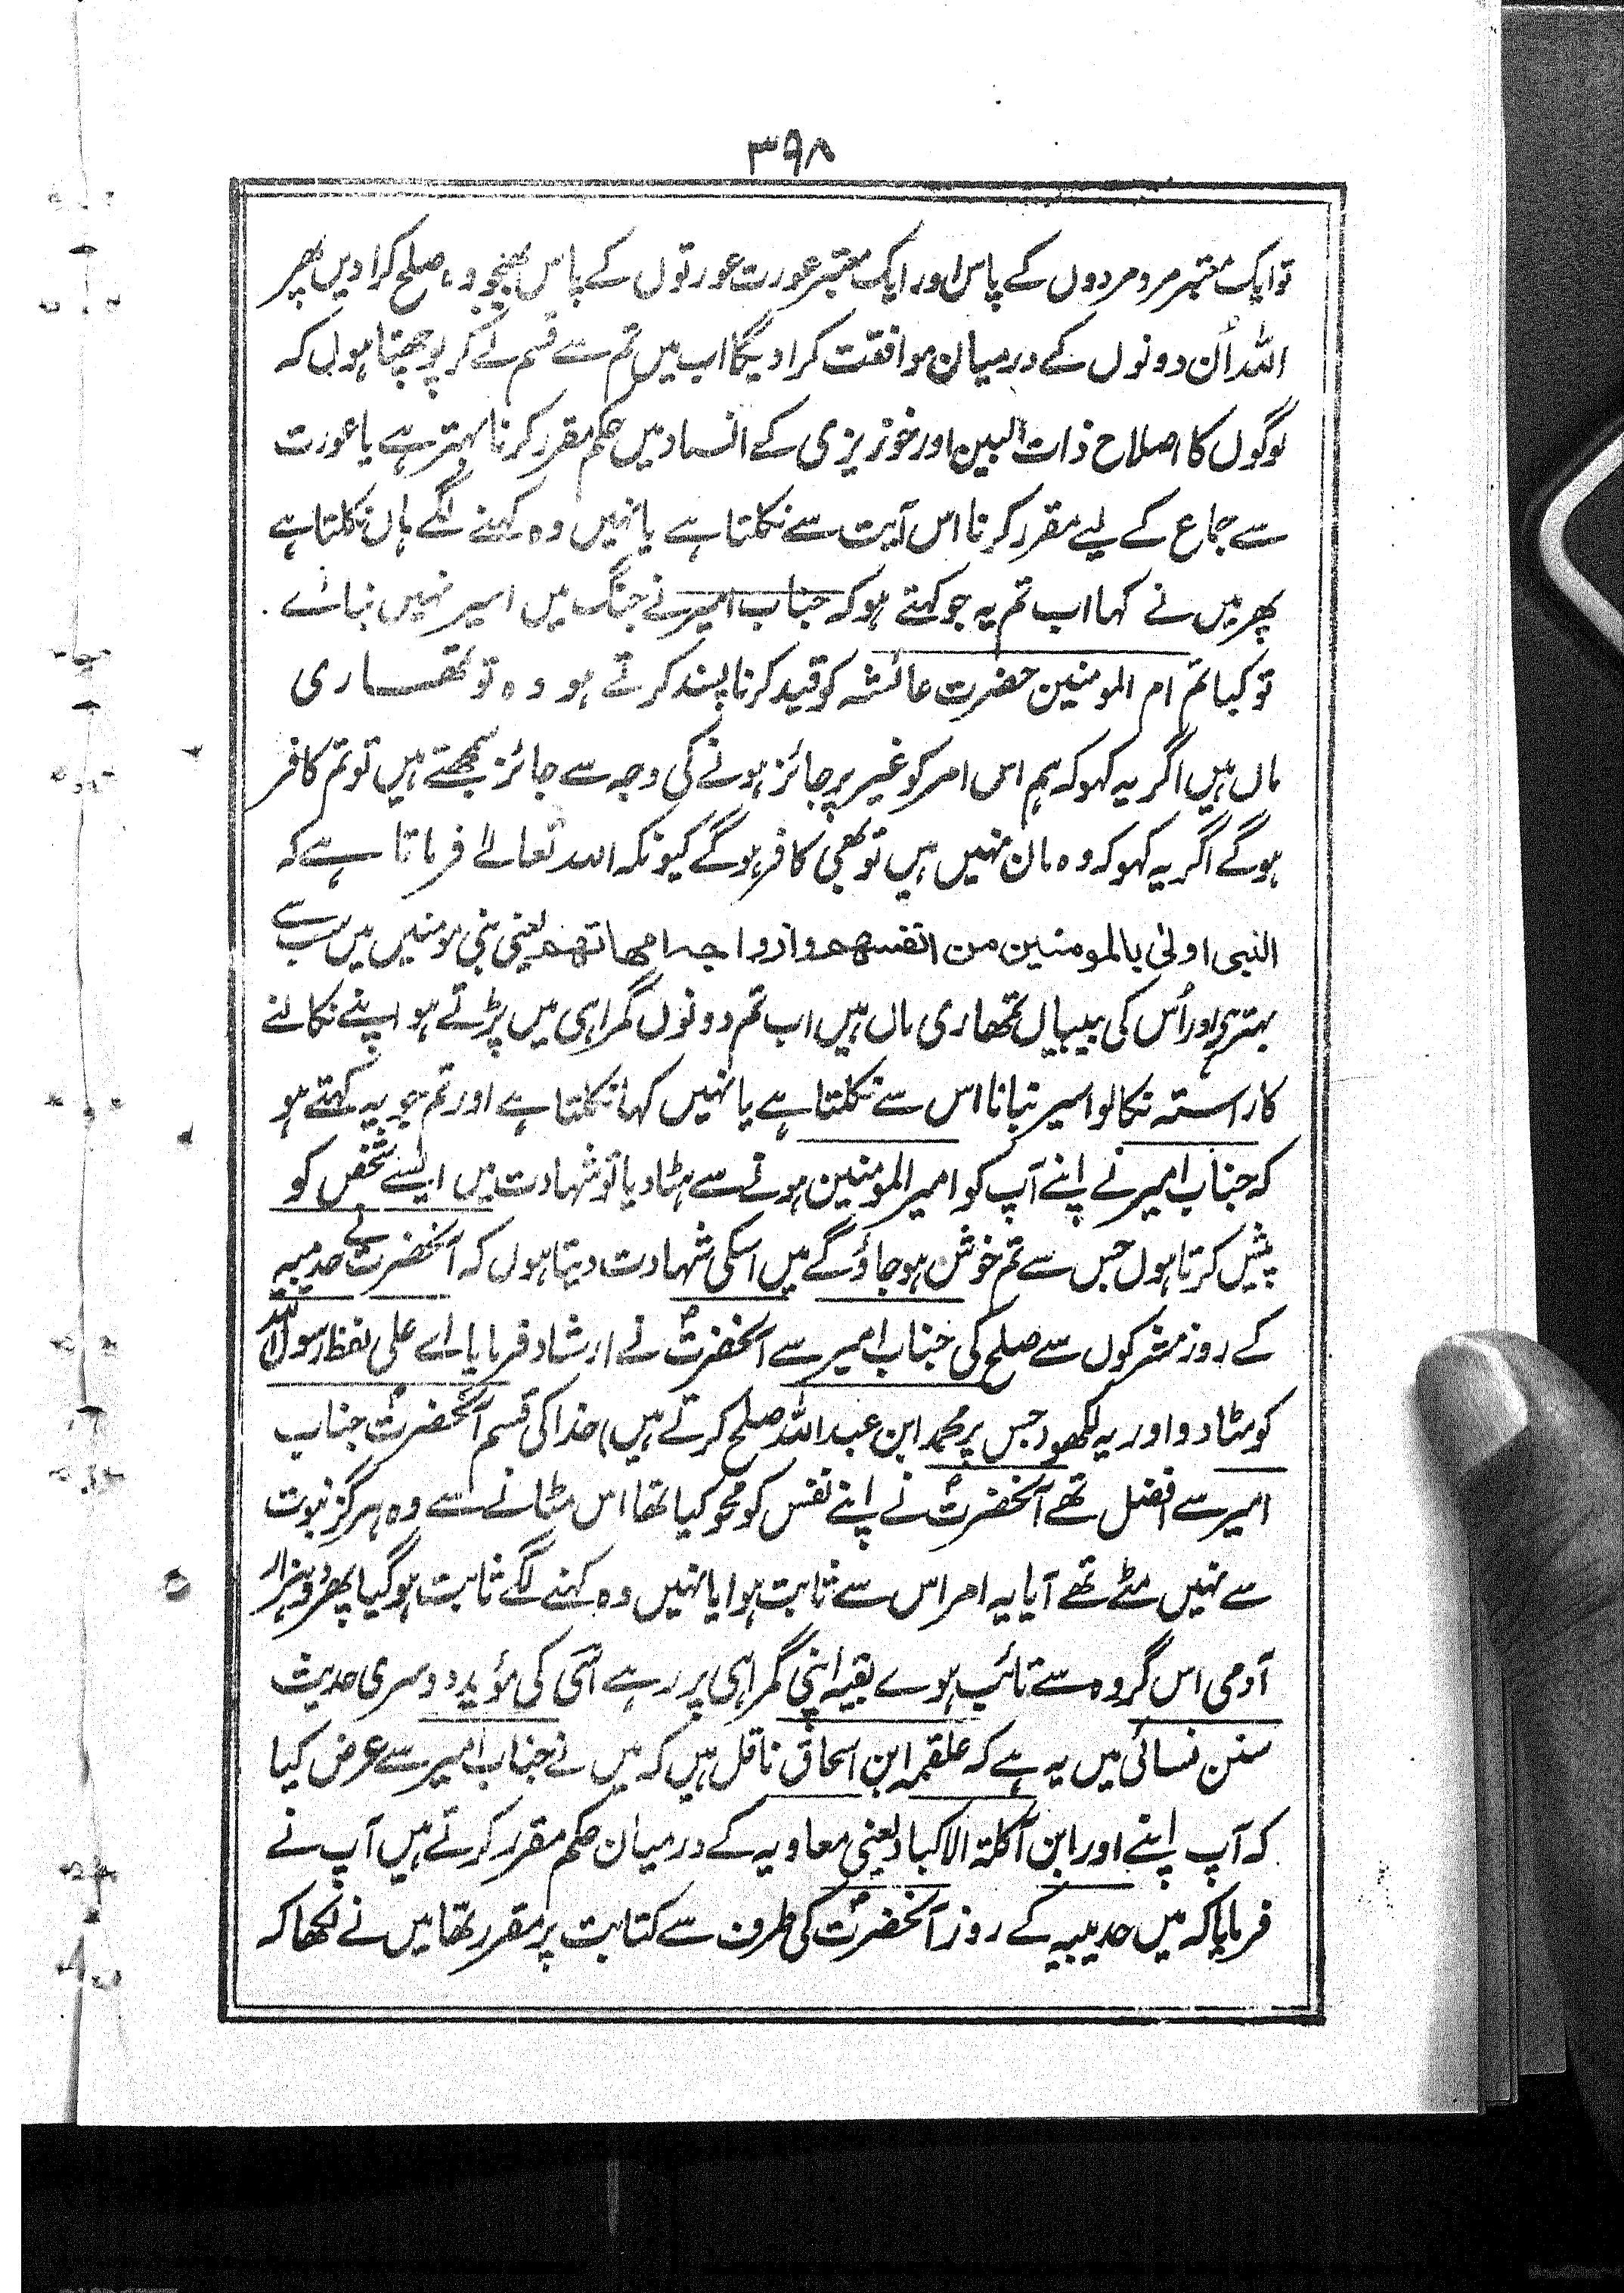 ۳۹۸
تو ایک معتبر مرد مردوں کے پاس اور ایک معتبر عورت عورتوں کے پاس بھیجو وہ صلح کرا دیں پھر
اللہ اُن دونوں کے درمیان موافقت کرا دیگا اب میں تم سے قسم لے کر پوچھتا ہوں کہ
لوگوں کا اصلاح ذات البین اور خونریزی کے انسداد میں حکم مقرر کرنا بہتر ہے یا عورت
سے جماع کے لیے مقرر کرنا اس آیت سے نکلتا ہے یا نہیں وہ کہنے لگے ہاں نکلتا ہے
پھر میں نے کہا اب تم یہ جو کہتے ہو کہ جناب امیر نے جنگ میں اسیر نہیں بنائے
تو کیا تم ام المومنین حضرت عائشہ کو قید کرنا پسند کرتے ہو وہ تو تمھاری
ماں ہیں اگر یہ کہو کہ ہم اس امر کو غیر پر جائز ہونے کی وجہ سے جائز سمجھتے ہیں تو تم کافر
ہوگے اگر یہ کہو کہ وہ ماں نہیں ہیں تو بھی کافر ہوگے کیونکہ اللہ تعالے فرماتا ہے کہ
النبی اولیٰ بالمومنین من انفسھم وازواجہ امھاتھم یعنی نبی مومنیں میں سب سے
بہتر ہے اور اُس کی بیبیاں تمھاری ماں ہیں اب تم دونوں گمراہی میں پڑتے ہو اپنے نکالنے
کا راستہ نکالو اسیر بنانا اس سے نکلتا ہے یا نہیں کہا نکلتا ہے اور تم جو یہ کہتے ہو
کہ جناب امیر نے اپنے آپ کو امیر المومنین ہونے سے ہٹا دیا تو شہادت میں ایسے شخص کو
پیش کرتا ہوں جس سے تم خوش ہو جاؤگے میں اسکی شہادت دیتا ہوں کہ آنحضرت نے حدیبیہ
کے روز مشرکوں سے صلح کی جناب امیر سے آنحضرتؐ نے ارشاد فرمایا اے علی لفظ رسول اللہ
کو مٹا دو اور یہ لکھو (جس پر محمد ابن عبداللہ صلح کرتے ہیں) خدا کی قسم آنحضرتؐ جناب
امیر سے افضل تھے آنحضرتؐ نے اپنے نفس کو محو کیا تھا اس مٹانے سے وہ ہرگز نبوت
سے نہیں مٹے تھے آیا یہ امر اس سے ثابت ہوا یا نہیں وہ کہنے لگے ثابت ہوگیا پھر دو ہزار
آدمی اس گروہ سے تائب ہوے بقیہ اپنی گمراہی پر رہے اسی کی مؤید دوسری حدیث
سنن نسائی میں یہ ہے کہ علقمہ ابن اسحاق ناقل ہیں کہ میں نے جناب امیر سے عرض کیا
کہ آپ اپنے اور ابن آکلۃ الاکباد یعنی معاویہ کے درمیان حکم مقرر کرتے ہیں آپ نے
فرمایا کہ میں حدیبیہ کے روز آنحضرتؐ کی طرف سے کتابت پر مقرر تھا میں نے لکھا کہ